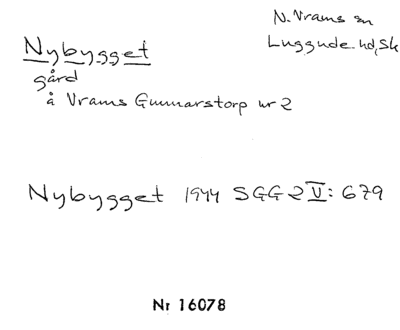 N. Vrams sn
Luggude hd, Sk
Nybygget
gård
å Vrams Gunnarstorp nr 2
Nybygget 1944 SGG 2 V: 679
Nr 16078